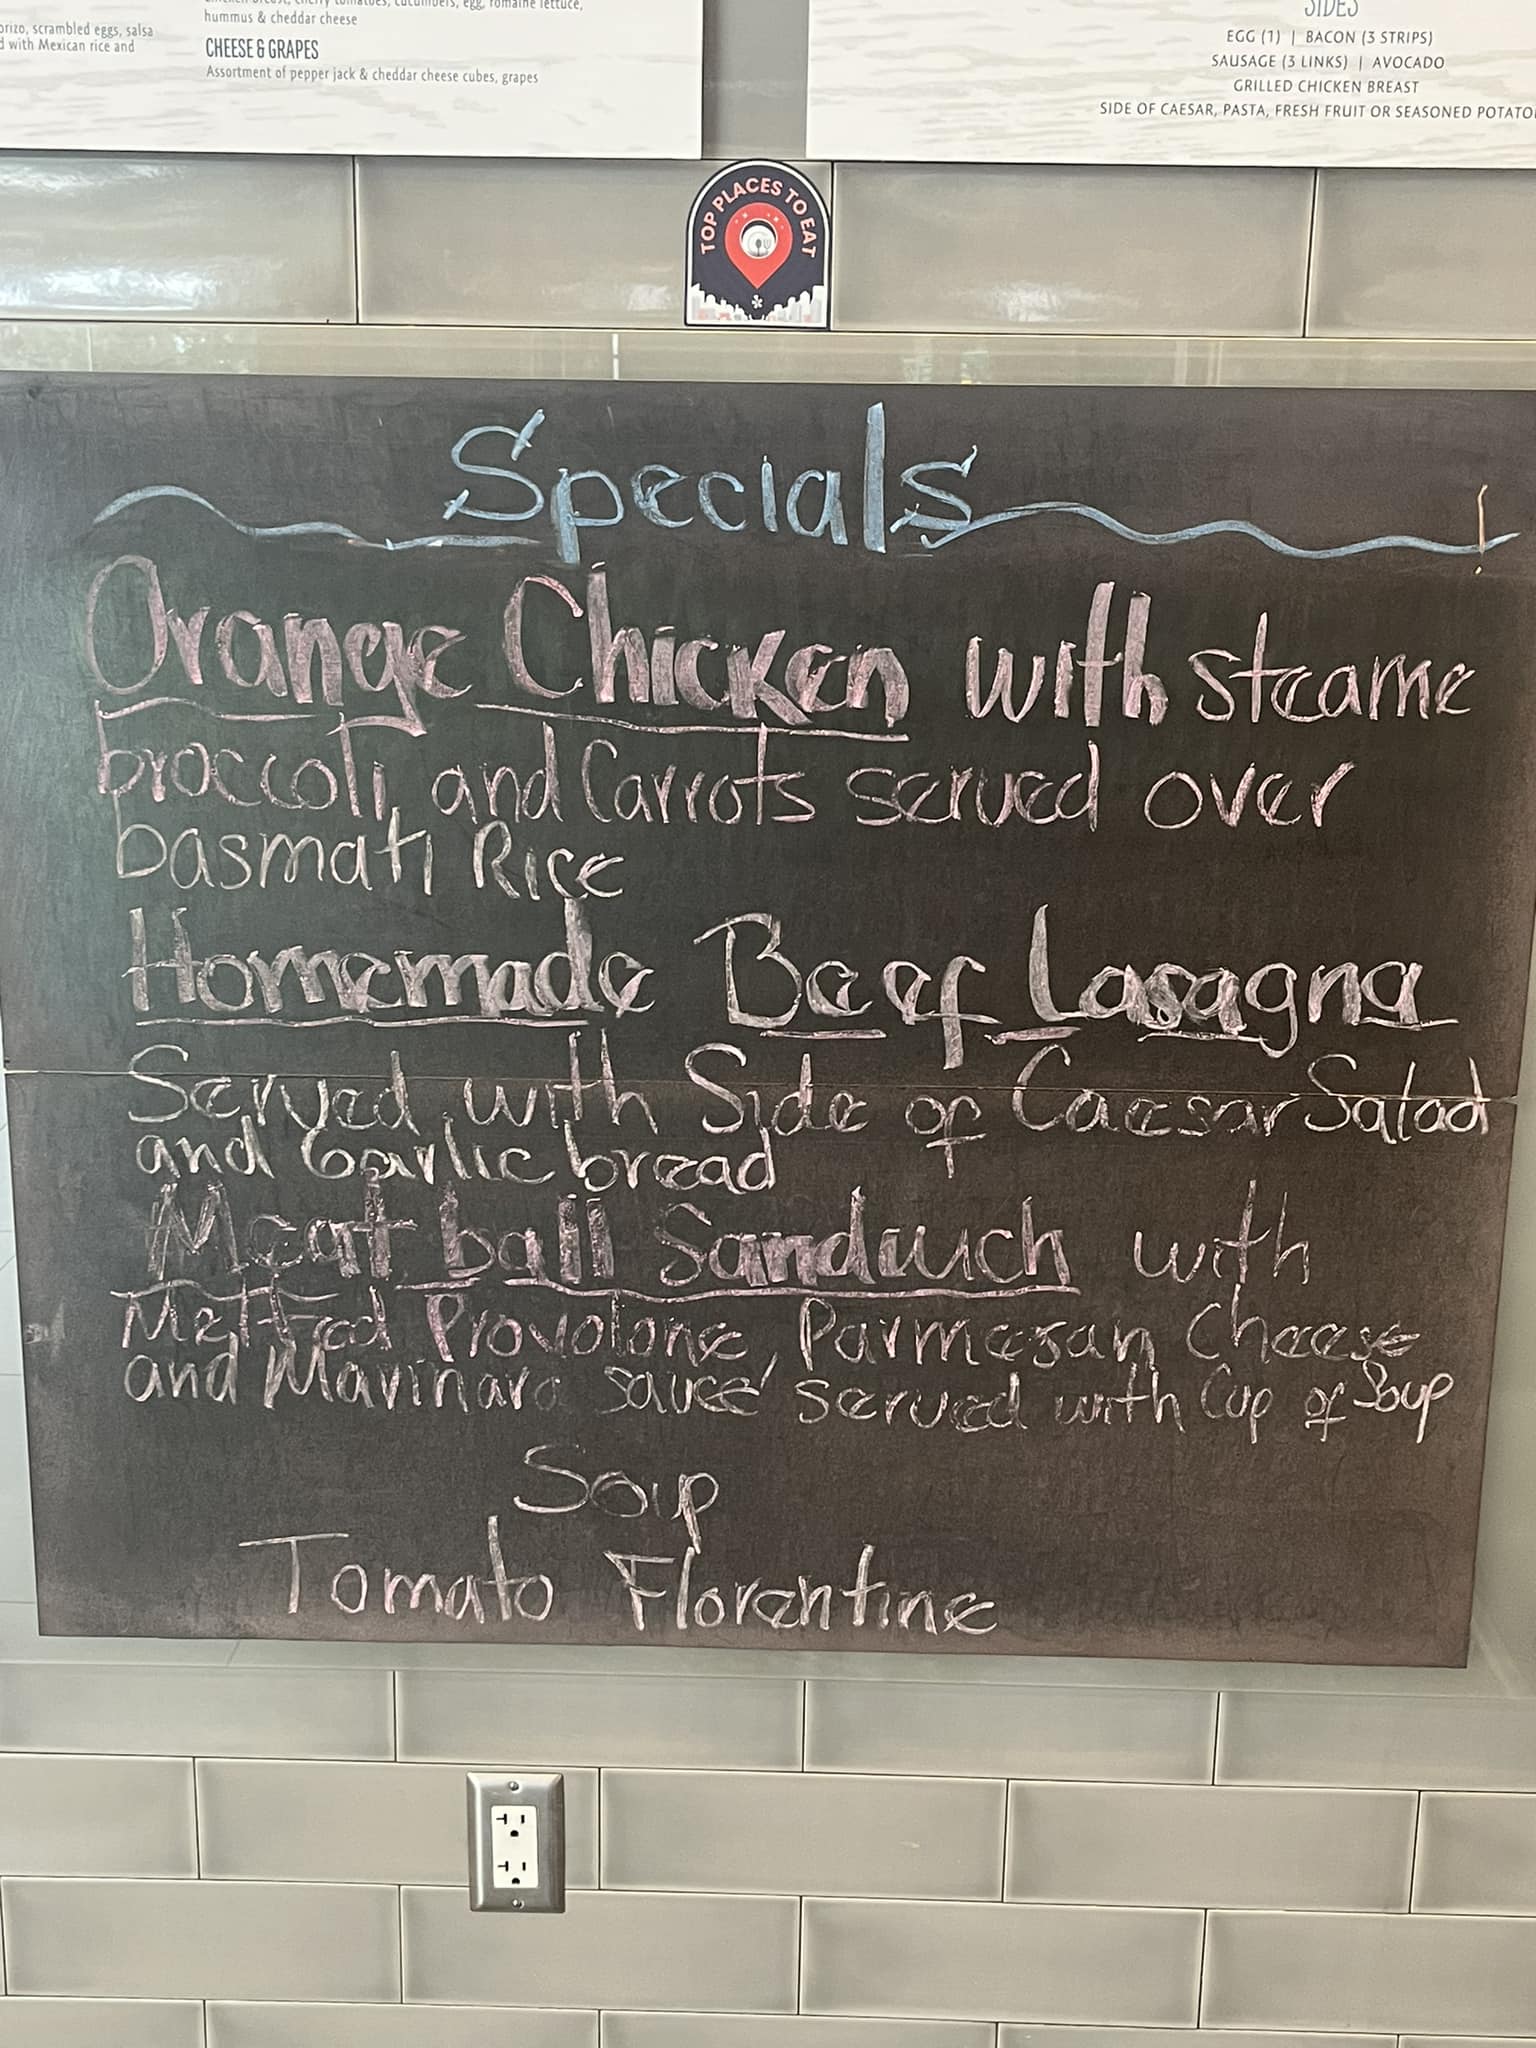 hummus & cheddar cheese
CHEESE & GRAPES
Assortment of pepper jack & cheddar cheese cubes, grapes
scrambled eggs, salsa
with Mexican rice and
SIDES
EGG (1) | BACON (3 STRIPS)
SAUSAGE (3 LINKS) | AVOCADO
GRILLED CHICKEN BREAST
SIDE OF CAESAR, PASTA, FRESH FRUIT OR SEASONED
TOP PLACES TO EAT
Specials
Orange Chicken with steame
broccoli and Carrots served over
basmati Rice
Homemade Beef Lasagna
Served with Side of Caesar Salad
and Garlic bread
Meat ball Sandwich with
Melted Provolone, Parmesan Cheese
and Marinara sauce, served with Cup of Soup
Soup
Tomato Florentine